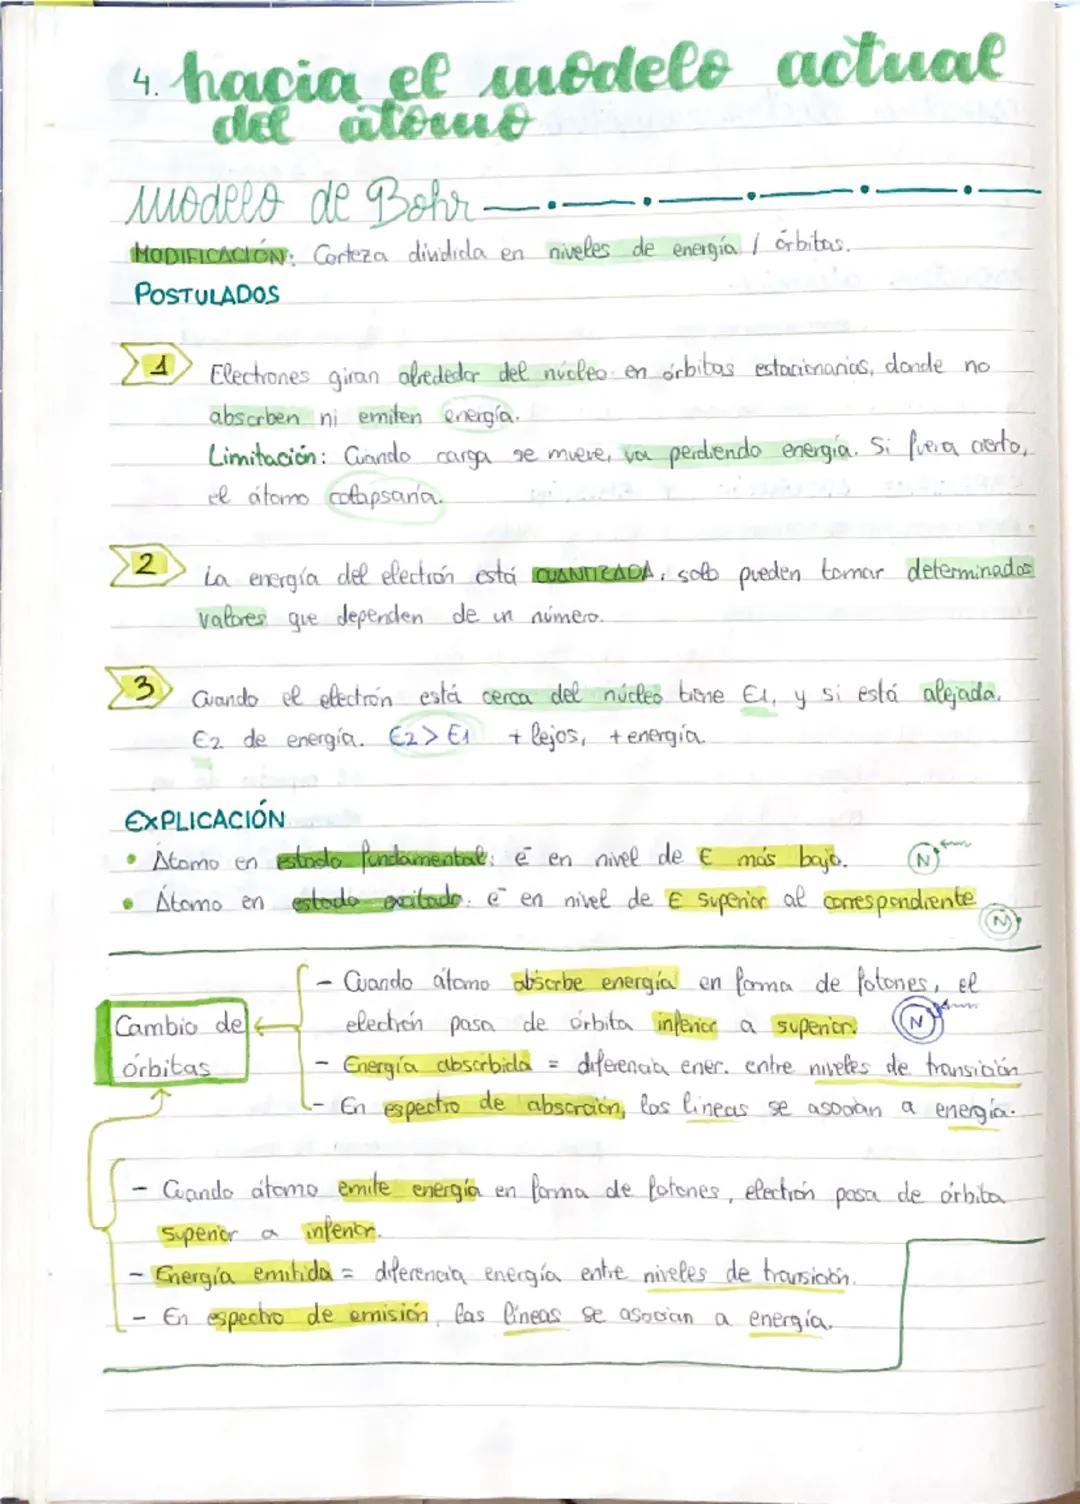 4. hacia el modelo actual
del átomo
modelo de Bohr
MODIFICACIÓN: Corteza dividida en niveles de energía / órbitas.
POSTULADOS
1 Electrones giran alrededor del núcleo en órbitas estacionarias, donde no
absorben ni emiten energía.
Limitación: Cuando carga se mueve, va perdiendo energía. Si fuera cierto,
el átomo colapsaría.
2 La energía del electrón está CUANTIZADA, solo pueden tomar determinados
valores que dependen de un número.
3 Cuando el electrón está cerca del núcleo tiene E1, y si está alejada,
E2 de energía. E2 > E1 + lejos, + energía.
EXPLICACIÓN
• Átomo en estado fundamental: e⁻ en nivel de E más bajo. N
• Átomo en estado excitado: e⁻ en nivel de E superior al correspondiente N
- Cuando átomo absorbe energía en forma de fotones, el
Cambio de electrón pasa de órbita inferior a superior. N
órbitas - Energía absorbida = diferencia ener. entre niveles de transición
- En espectro de absorción, las líneas se asocian a energía.
- Cuando átomo emite energía en forma de fotones, electrón pasa de órbita
superior a inferior.
- Energía emitida = diferencia energía entre niveles de transición.
- En espectro de emisión, las líneas se asocian a energía.